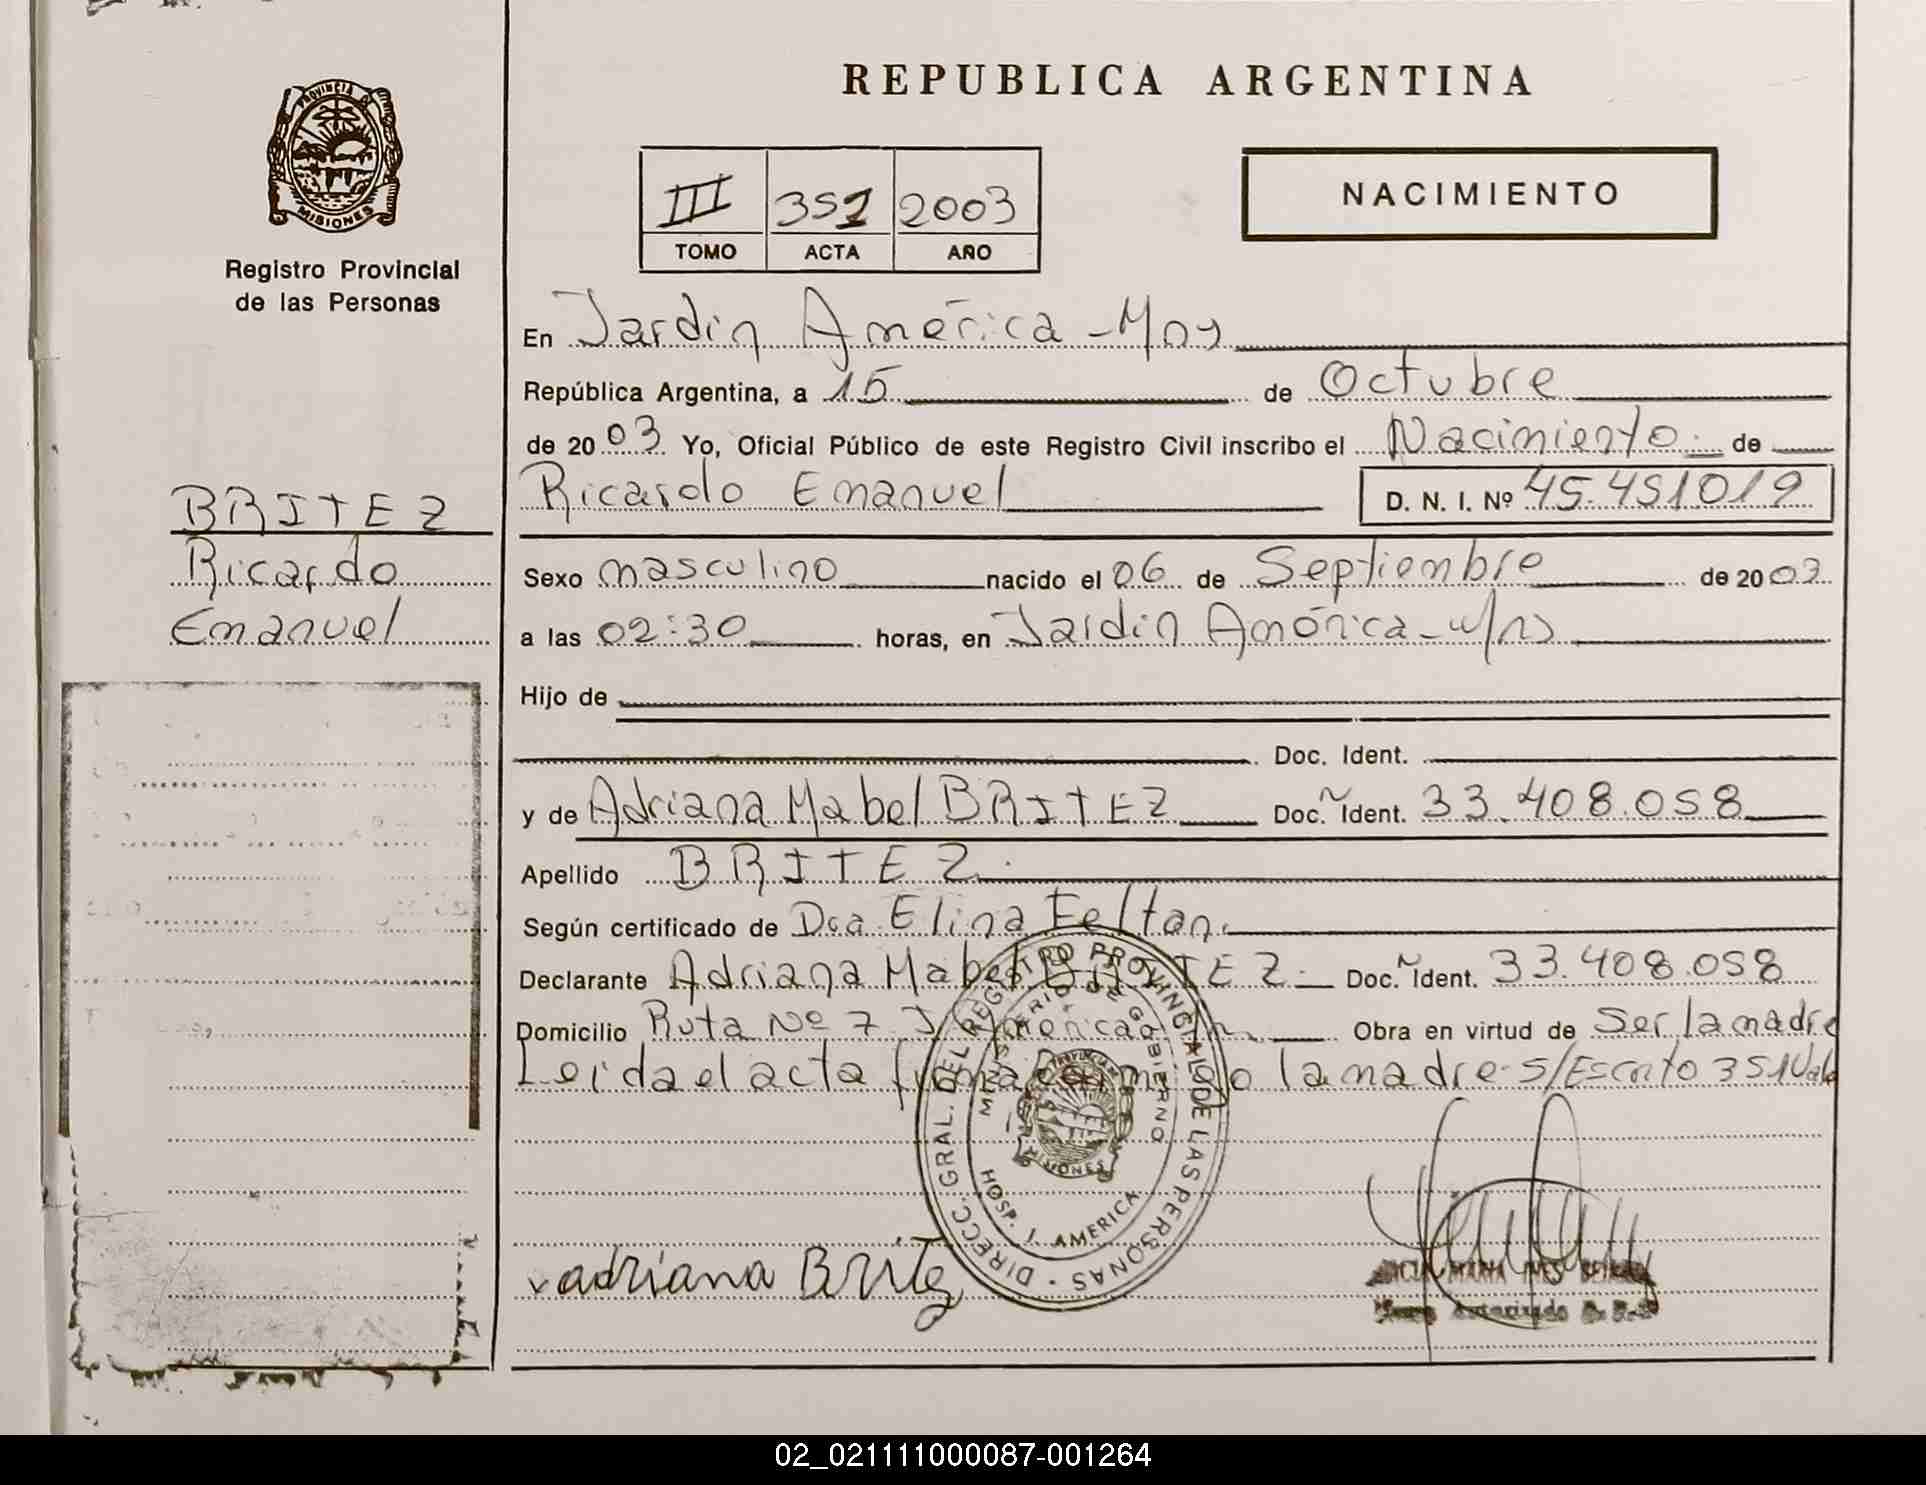 REPUBLICA ARGENTINA
PROVINCIA DE
MISIONES
Registro Provincial
de las Personas
III 351 2003
TOMO ACTA AÑO
NACIMIENTO
BRITEZ
Ricardo
Emanuel
En Jardin América - Mns
República Argentina, a 15 de Octubre
de 2003 Yo, Oficial Público de este Registro Civil inscribo el Nacimiento de
Ricardo Emanuel D. N. I. Nº 45.451019
Sexo masculino nacido el 06 de Septiembre de 2003
a las 02:30 horas, en Jardin América - Mns
Hijo de
Doc. Ident.
y de Adriana Mabel BRITEZ Doc. Ident. 33.408.058
Apellido BRITEZ
Según certificado de Dra Elina Feltan
Declarante Adriana Mabel BRITEZ Doc. Ident. 33.408.058
Domicilio Ruta Nº 7 J. América Obra en virtud de Ser la madre
Leida el acta firma conmigo la madre S/Escrito 351 Vale
DIRECC. GRAL. DEL REGISTRO PROVINCIAL DE LAS PERSONAS
MINISTERIO DE GOBIERNO
PROVINCIA
MISIONES
HOSP. J. AMERICA
x adriana Britez
MARIA INES
Autorizado
02_021111000087-001264